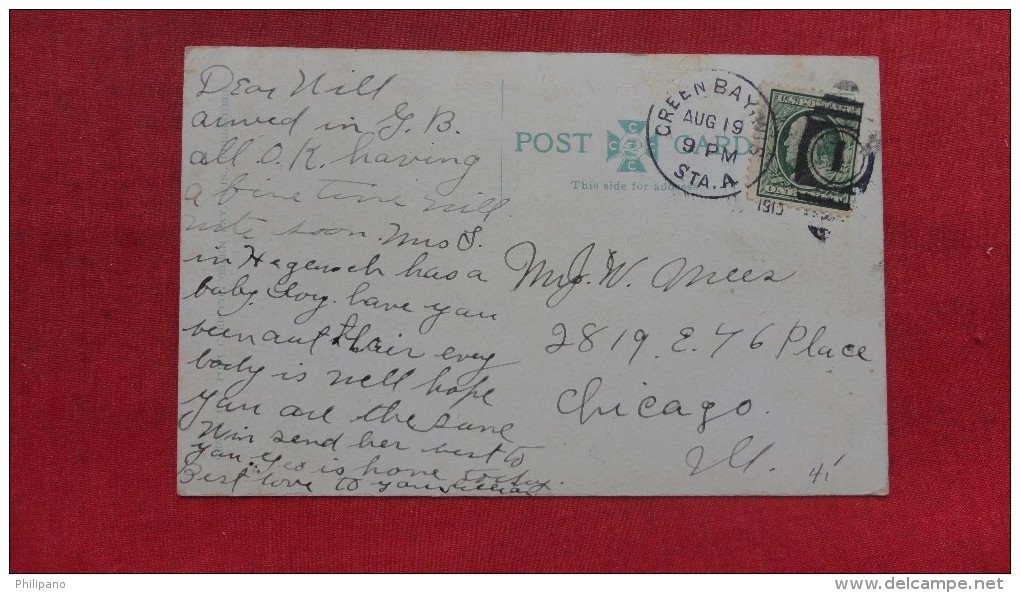 Dear Will
arived in G. B.
all O.K. having
a fine time will
rite soon. Mrs J.
in Hagemach has a
baby boy. have you
been out Flair every
body is well hope
you are the same
Win send her best to
you is home today.
Best love to you
POST CARD
This side for address
GREEN BAY, WIS.
AUG 19
9 PM
STA. A
1910
1
Mr J. W. Mees
2819. E. 76 Place
Chicago.
Ill.
41
Philipano
http://www.delcampe.net